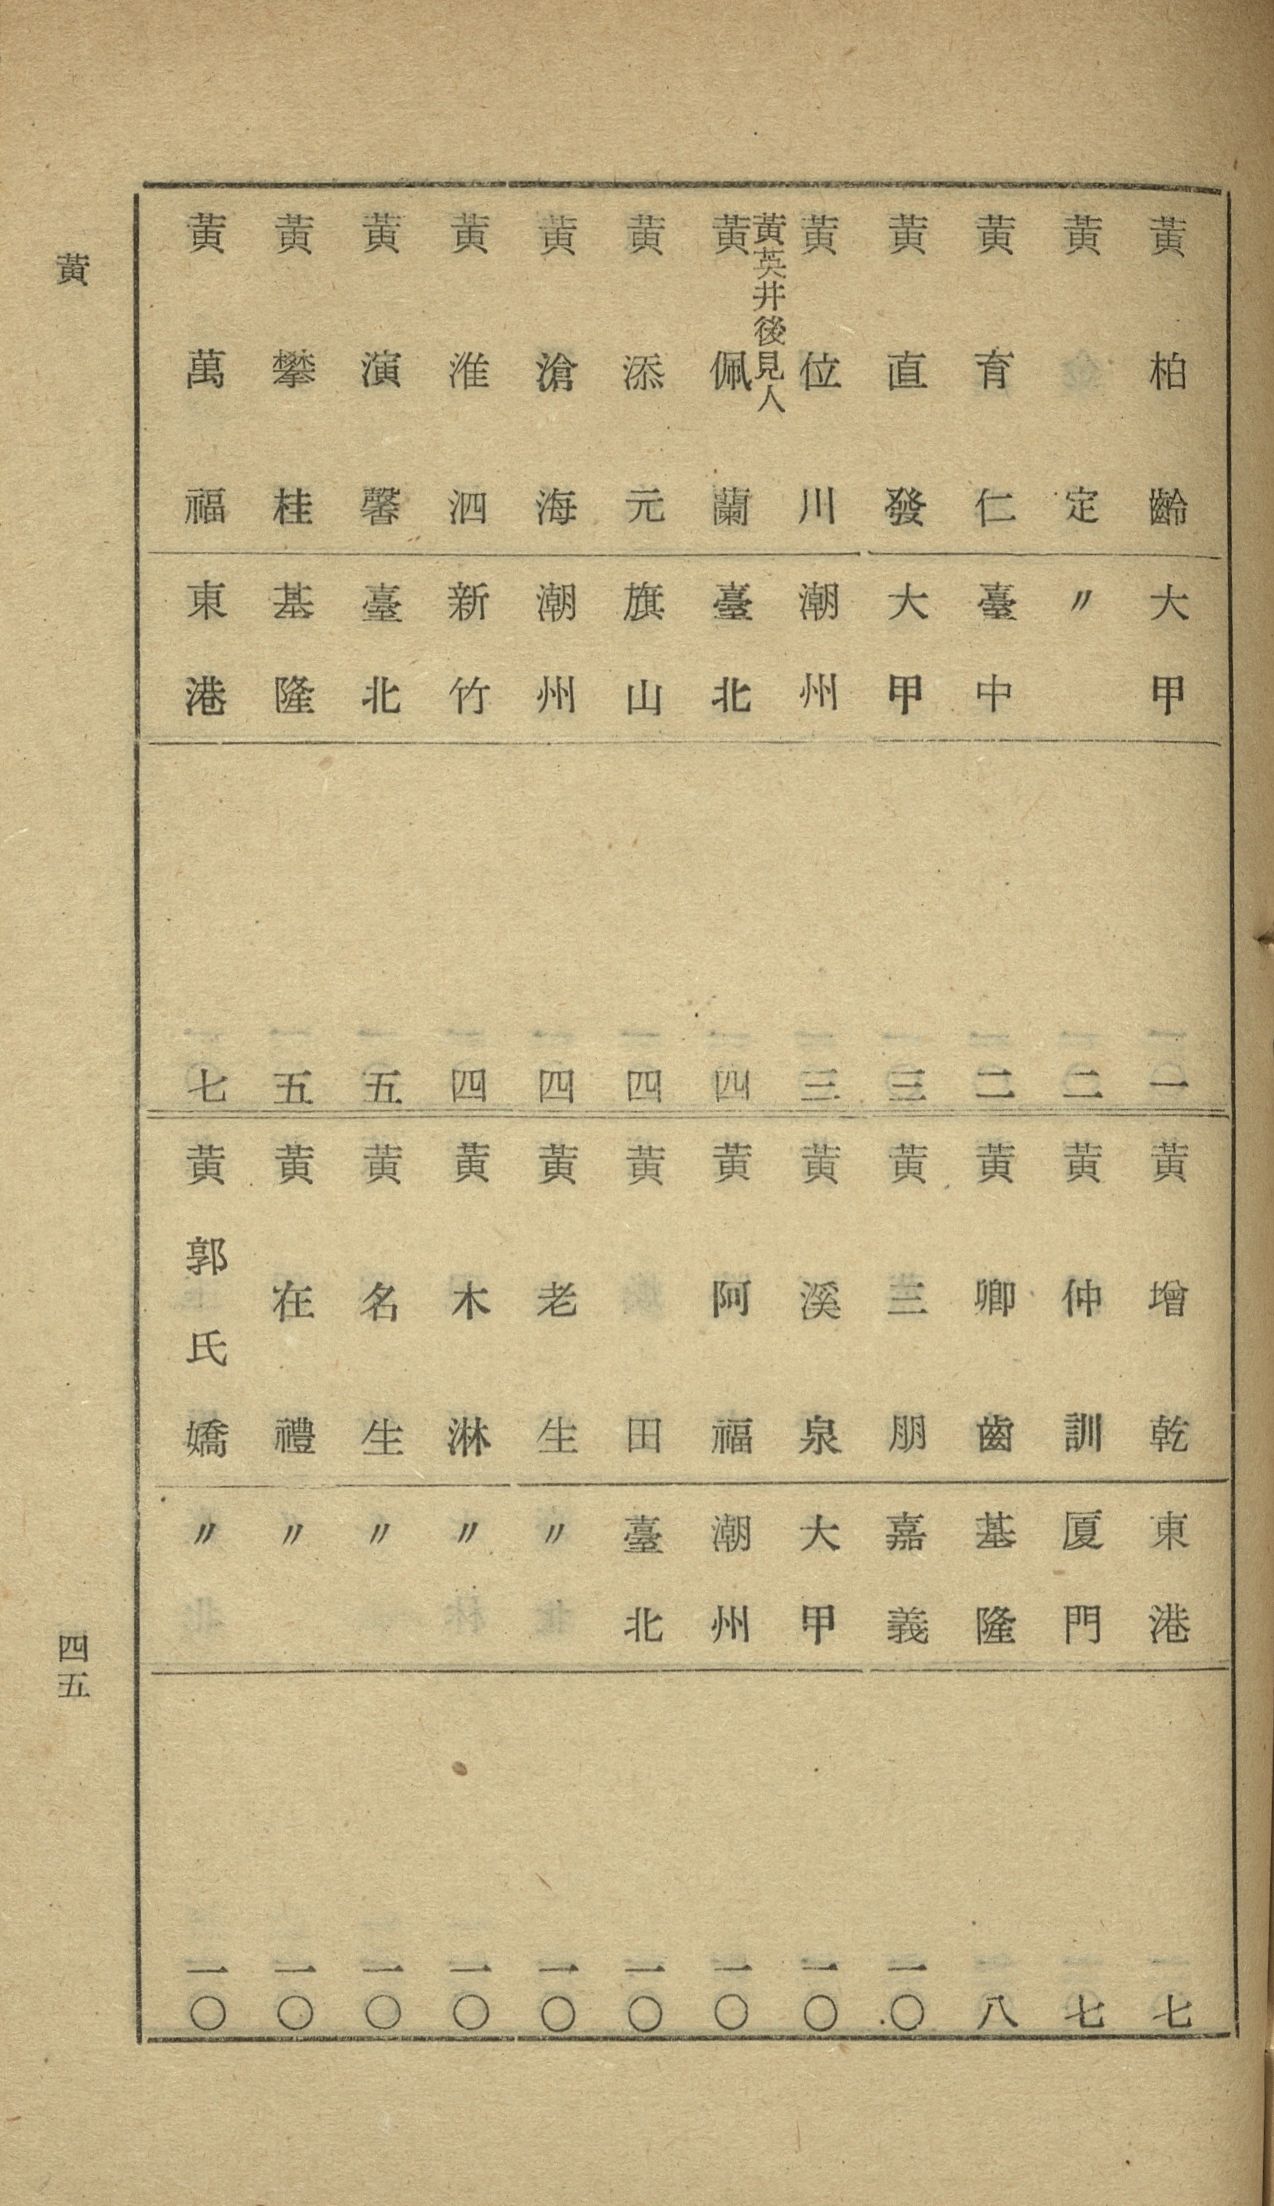 黃柏齡 大甲 一
黃定 〃 二
黃育仁 臺中 二
黃直發 大甲 三
黃位川 潮州 三
黃英井後見人
黃佩蘭 臺北 四
黃添元 旗山 四
黃滄海 潮州 四
黃淮泗 新竹 四
黃演馨 臺北 五
黃攀桂 基隆 五
黃萬福 東港 七
黃增乾 東港 七
黃仲訓 厦門 七
黃卿齒 基隆 八
黃三朋 嘉義 一〇
黃溪泉 大甲 一〇
黃阿福 潮州 一〇
黃田 臺北 一〇
黃老生 〃 一〇
黃木淋 〃 一〇
黃名生 〃 一〇
黃在禮 〃 一〇
黃郭氏嬌 〃 一〇
黃
四五